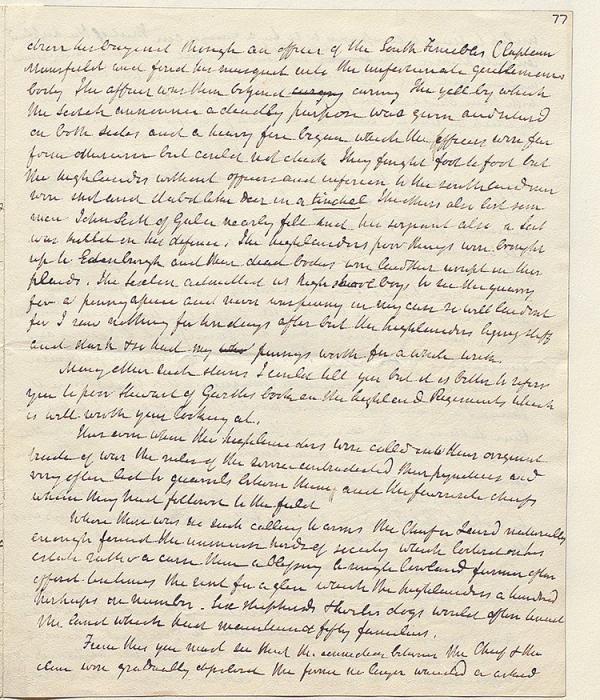 77
drew his bayonet through an officer of the South Fencibles (Captain
Mansfield and fired his musquet into the unfortunate gentlemans
body. The officer was then behind during the yell by which
the Scotch announce a deadly purpose was given and returnd
on both sides and a heavy fire began which the officers were far
from otherwise but could not check They fought foot to foot but
the highlanders without officers and inferior to the southland men
were shot and stabd like deer in a tinchel The others also lost some
men John Scott of Gala nearly fell and his sergeant also a Scot
was killed in his defence. The highlanders poor things were brought
up to Edinburgh and their dead bodies were laid out wrapt in their
plaids. The sexton admitted us high school boys to see the
for a penny apiece and never was penny in my case so well laid out
for I saw nothing for ten days after but the highlanders lying stiff
and stark & so had my pennys worth for a whole week.
Many other such stories I could tell you but it is better to refer
you to poor Stewart of Garths book on the highland Regiments which
is well worth your looking at.
Thus even when the highlanders were called into their original
trade of war the rules of the service contradicted their prejudices and
very often led to quarrels between them and the favourite chiefs
whom they had followd to the field
When there was no such calling to arms the Chief or Laird naturally
enough found the numerous hords of society which loited on his
estate rather a curse than a blessing a single lowland farmer often
offerd ten times the rent for a glen which the highlanders a hundred
perhaps in number. Six shepherds & their dogs would often
the land which had maintaind fifty families.
From this you must see that the connection between the Chief & the
clan were gradually dissolved the former no longer wanted or asked